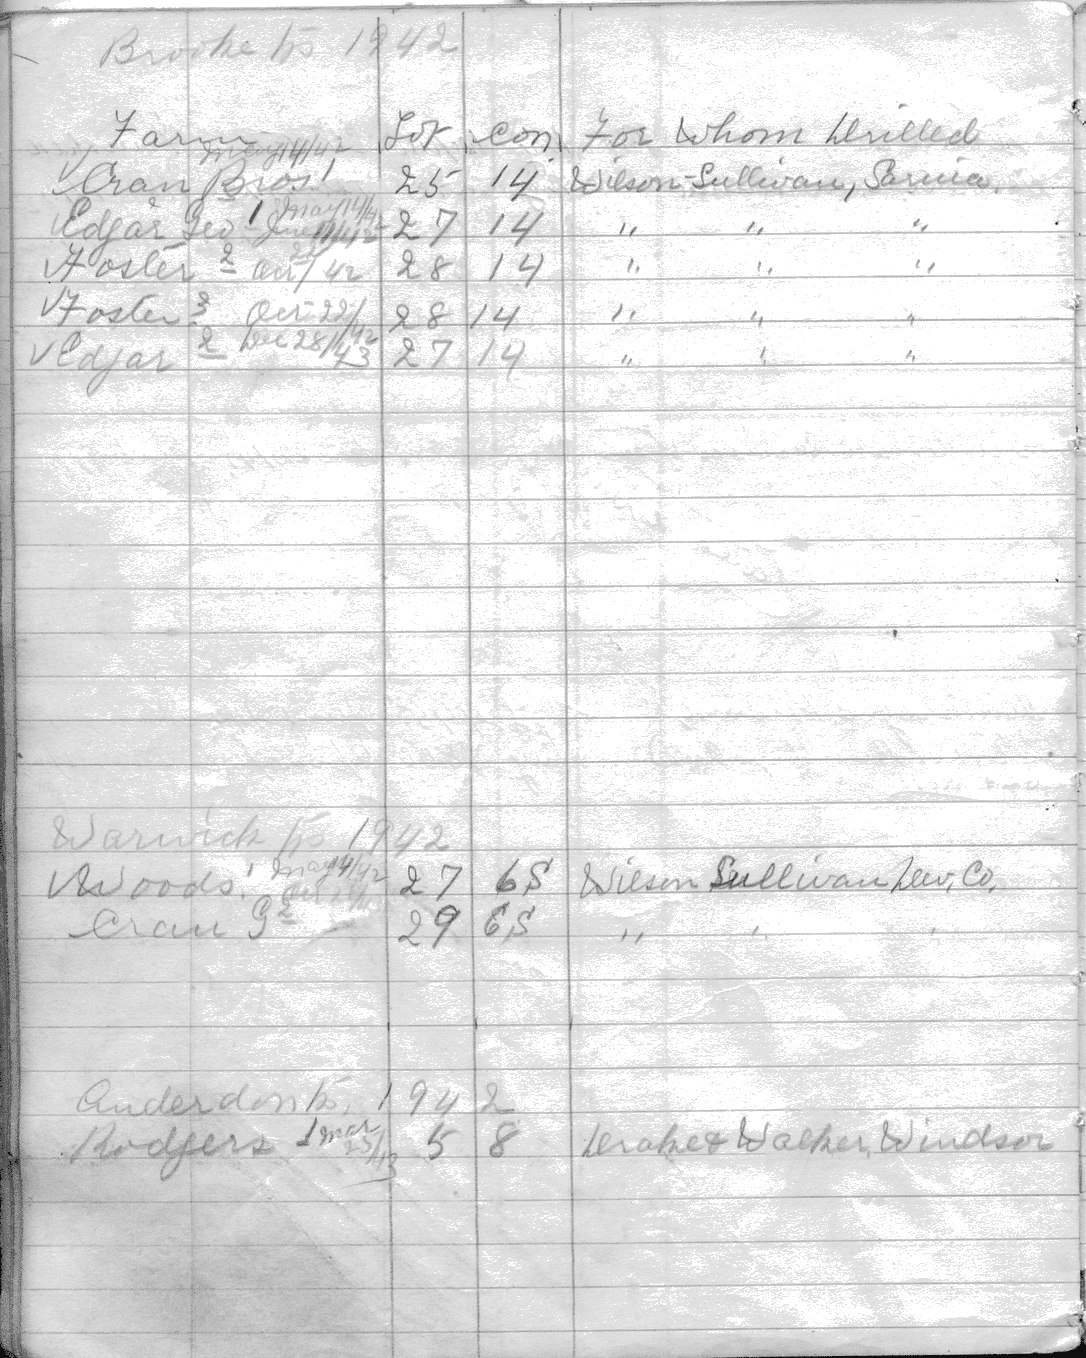 Brooke tp 1942
Farm Lot Con For Whom Drilled
May 14/42
Cran Bros 1 25 14 Wilson-Sullivan, Sarnia.
May 14/42
Edgar Geo 1 27 14 " " "
Foster 2 Oct / 42 28 14 " " "
Foster 3 Oct 22/42 28 14 " " "
Edgar 2 Dec 28/43 27 14 " " "
Warwick tp 1942
Woods. 1 May 14/42 27 6S Wilson Sullivan Dev. Co.
Cran G 2 29 6S " " "
Anderdon tp. 1942
Rodgers 1 Mar 25/43 5 8 Drake & Walker, Windsor